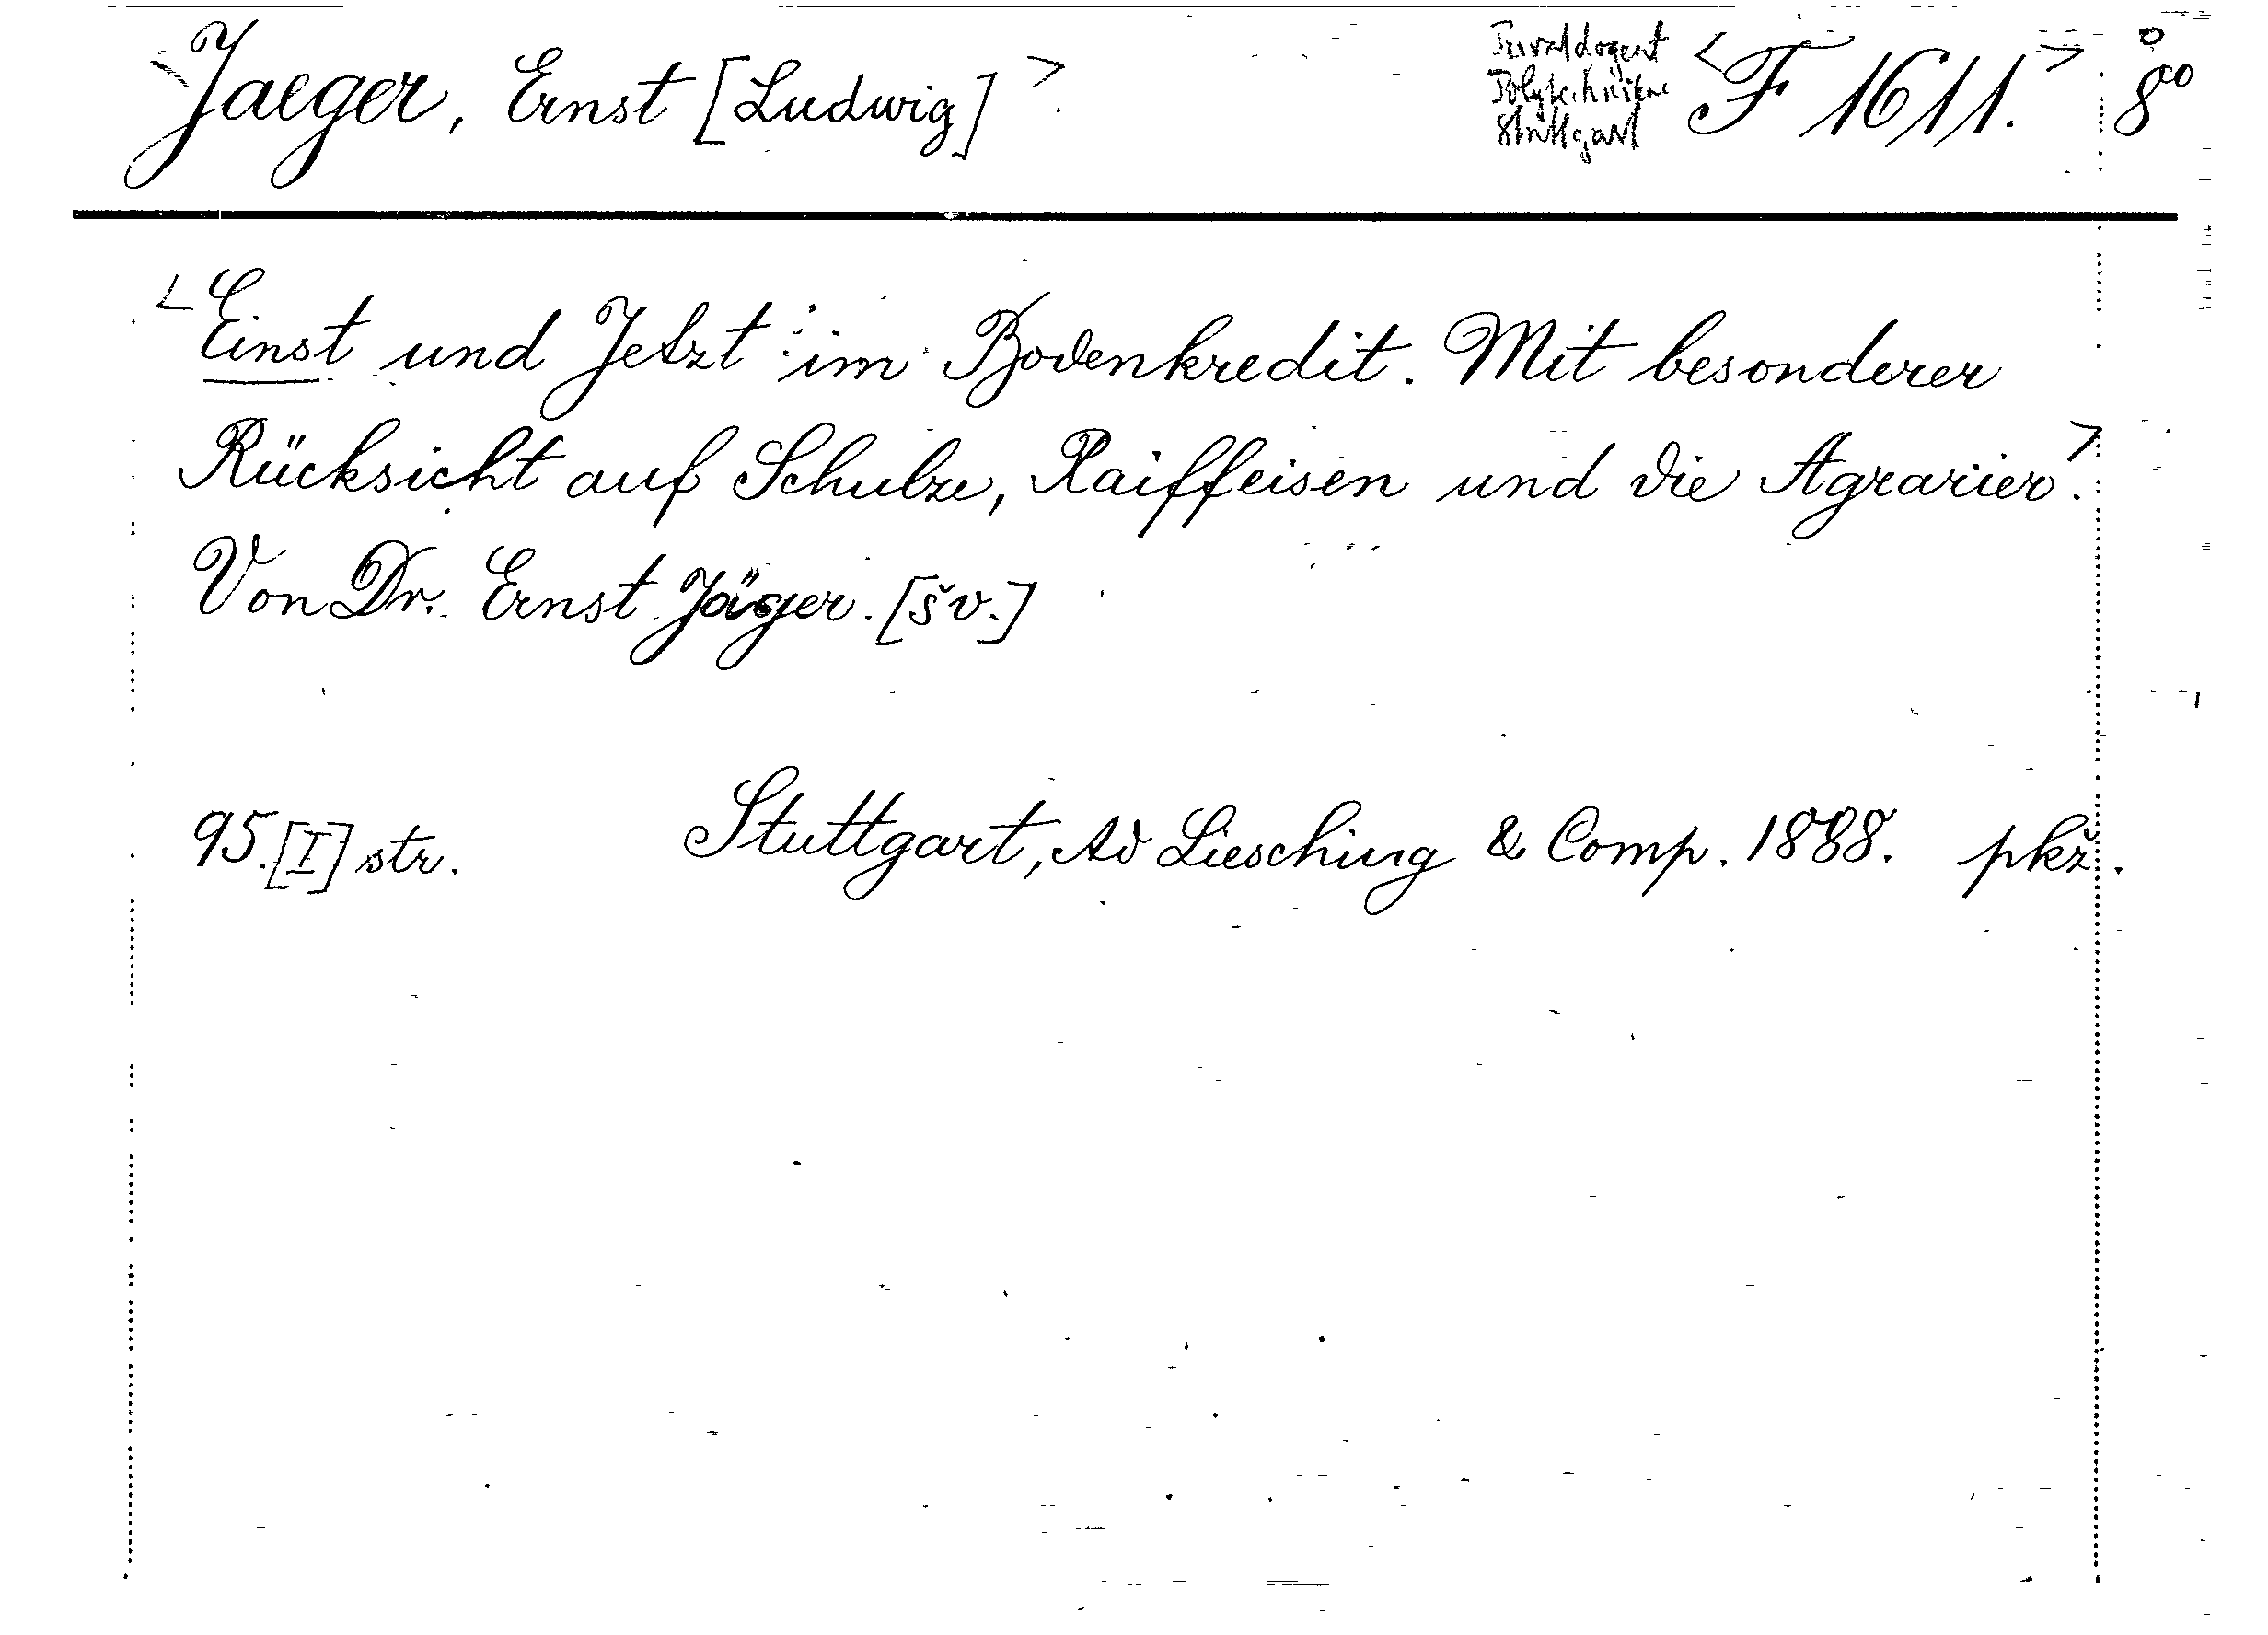 <Jaeger, Ernst [Ludwig]>
Privatdozent
Polytechnikum
Stuttgart
<F 1611.> 8°°
<Einst und Jetzt im Bodenkredit. Mit besonderer
Rücksicht auf Schulze, Raiffeisen und die Agrarier.>
Von Dr. Ernst Jäger. [šv.]
95.[I] str. Stuttgart, Ad Liesching & Comp. 1888. pkž.